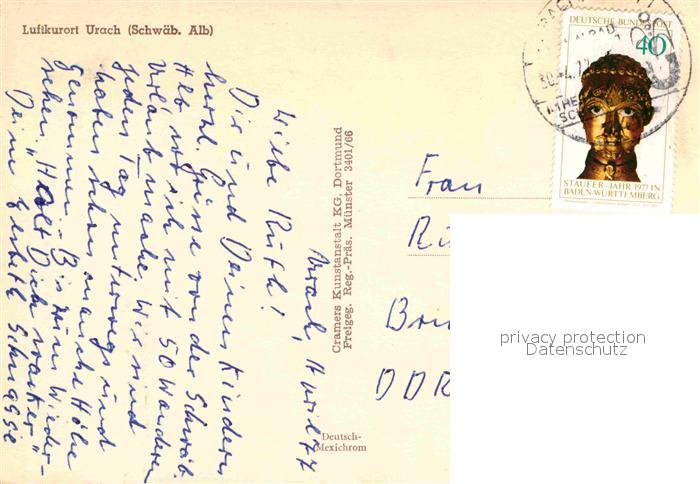 Luftkurort Urach (Schwäb. Alb)
DEUTSCHE BUNDESPOST
40
STAUFER-JAHR 1977 IN
BADEN-WÜRTTEMBERG
Urach, 77
Liebe Ruth!
Dir und Deinen Kindern
herzl. Grüsse von der Schwäb.
Alb wo ich mit 50 Wanderern
Urlaub mache. Wir sind
jeden Tag unterwegs und
haben schon manche Höhe
genommen. Bis zum Wieder-
sehen "Halt Dich wacker"
Deine
Cramers Kunstanstalt KG, Dortmund
Freigeg. Reg.-Präs. Münster 3401/66
Deutsch-
Mexichrom
Frau
DDR
privacy protection
Datenschutz